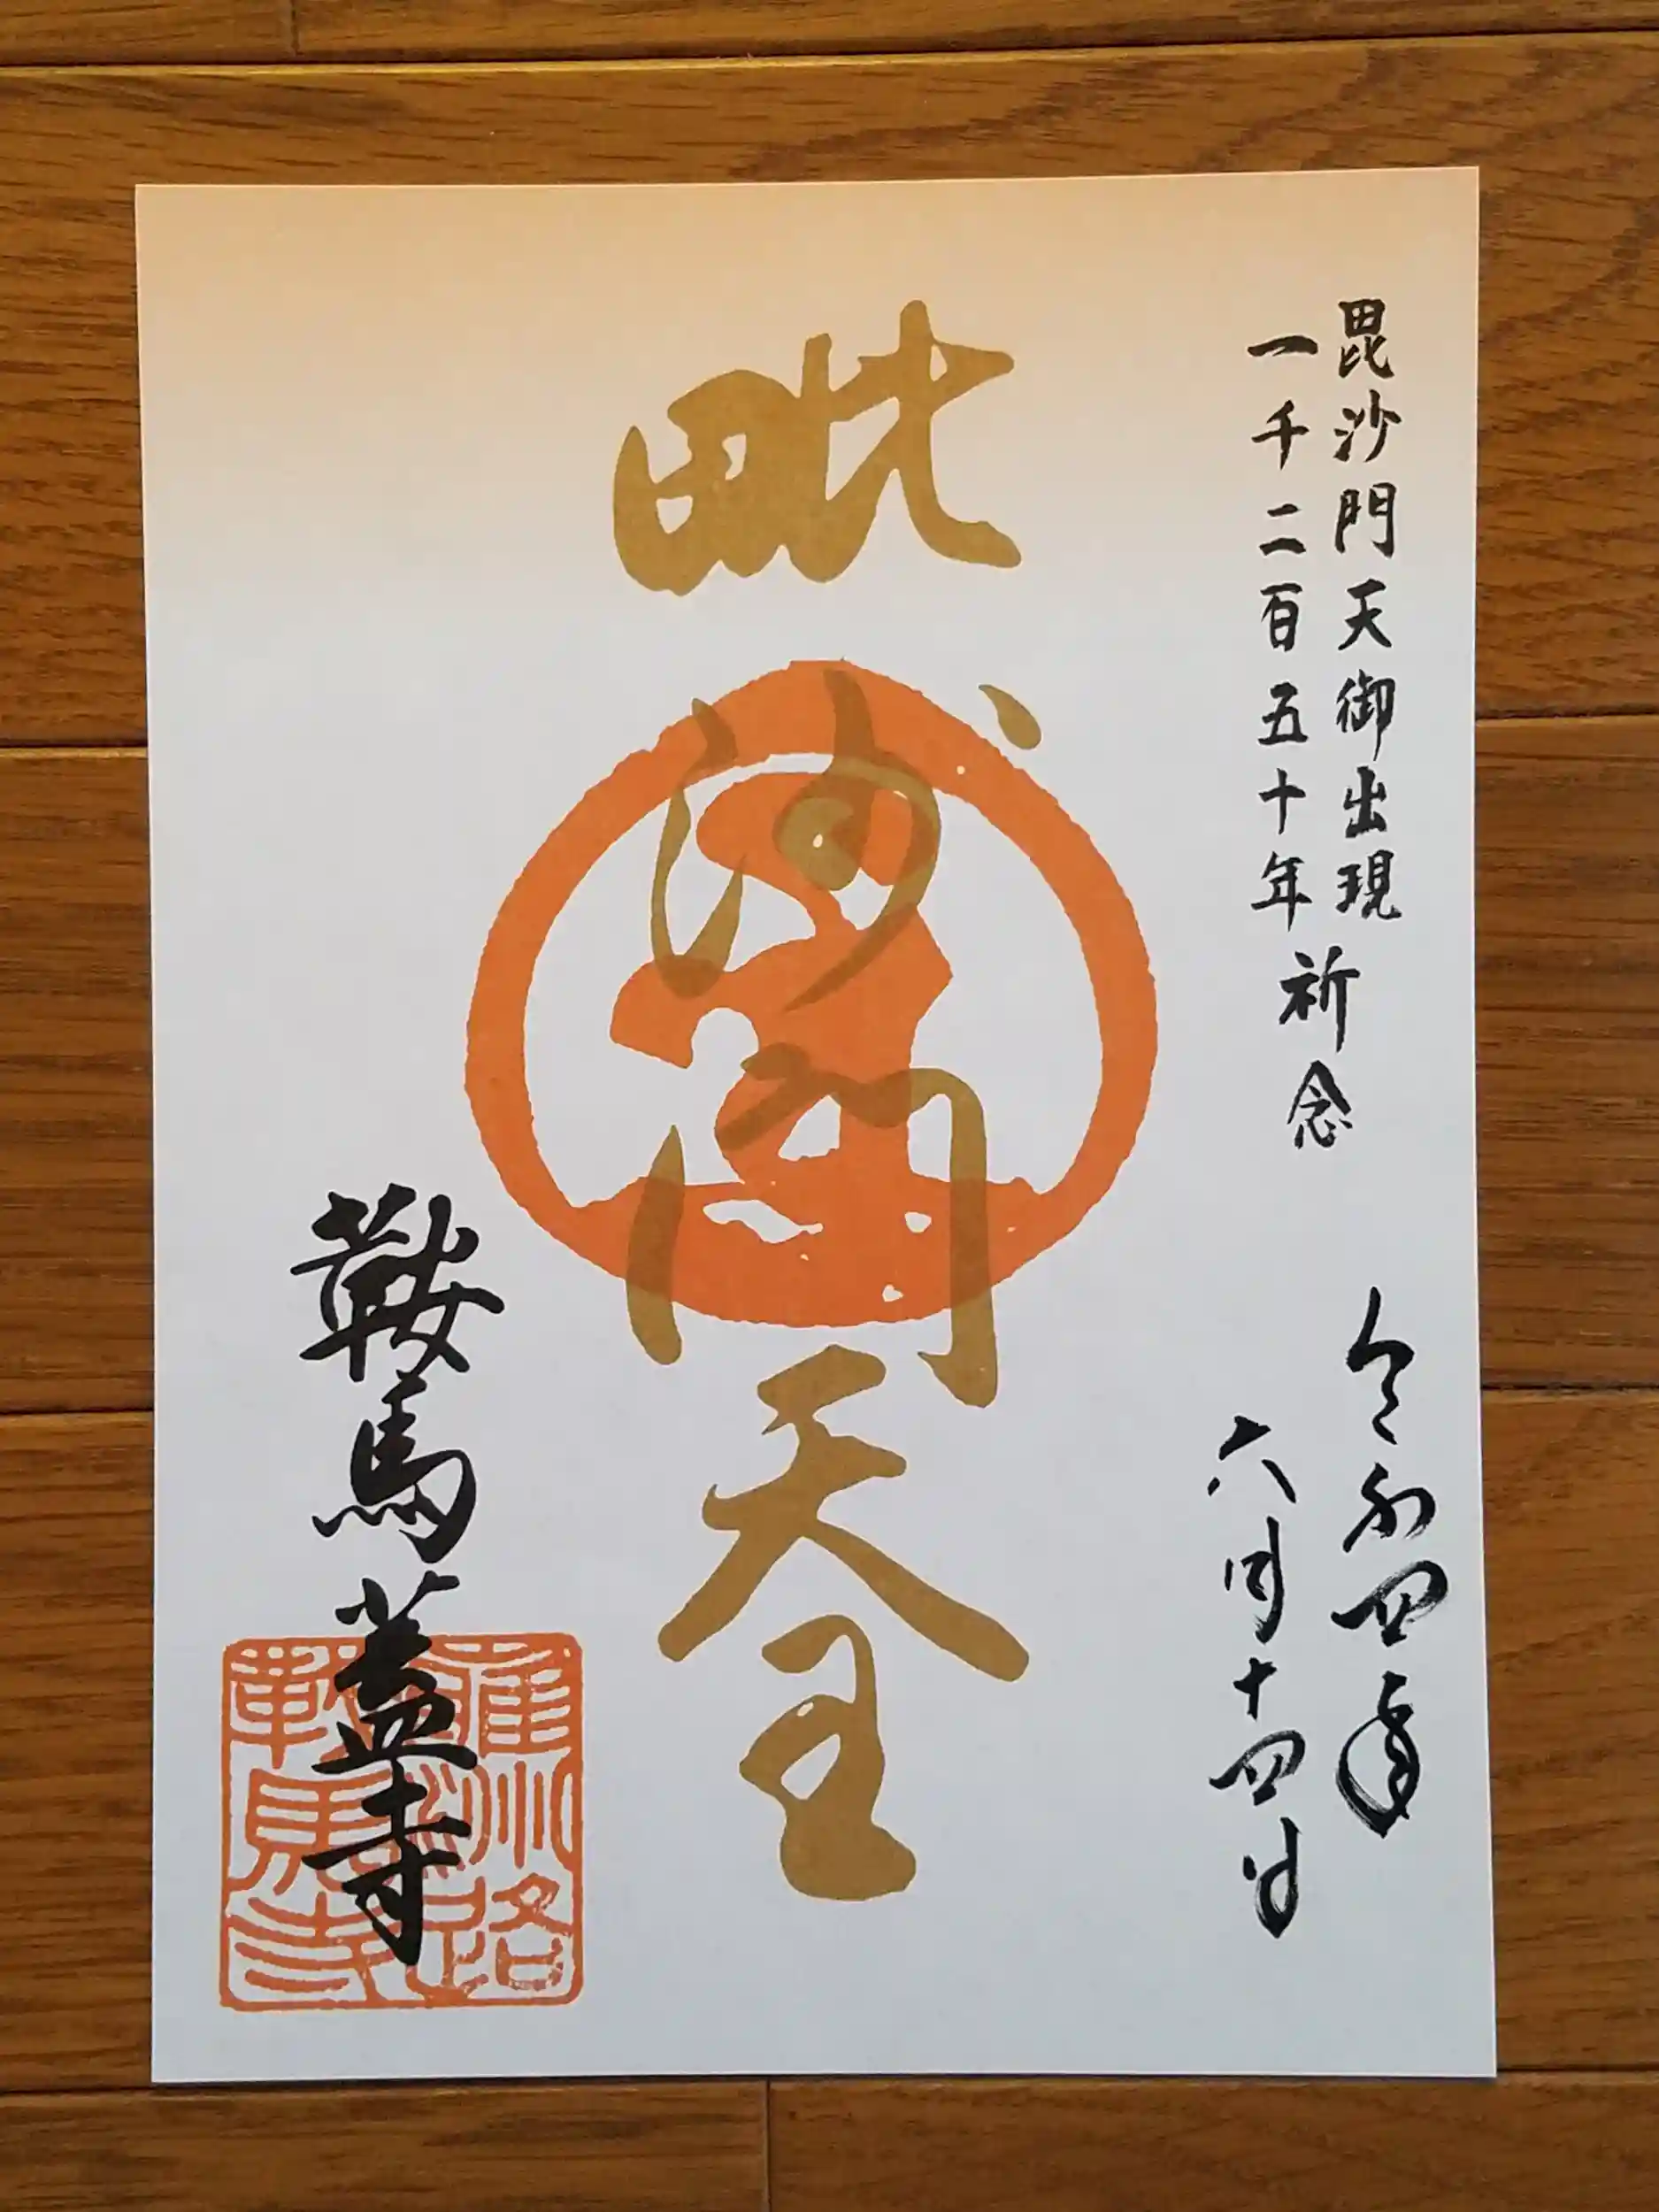 毘沙門天御出現
一千二百五十年
祈念
令和四年
六月十四日
毗沙門天王
鞍馬蓋寺
雍州路
鞍馬寺